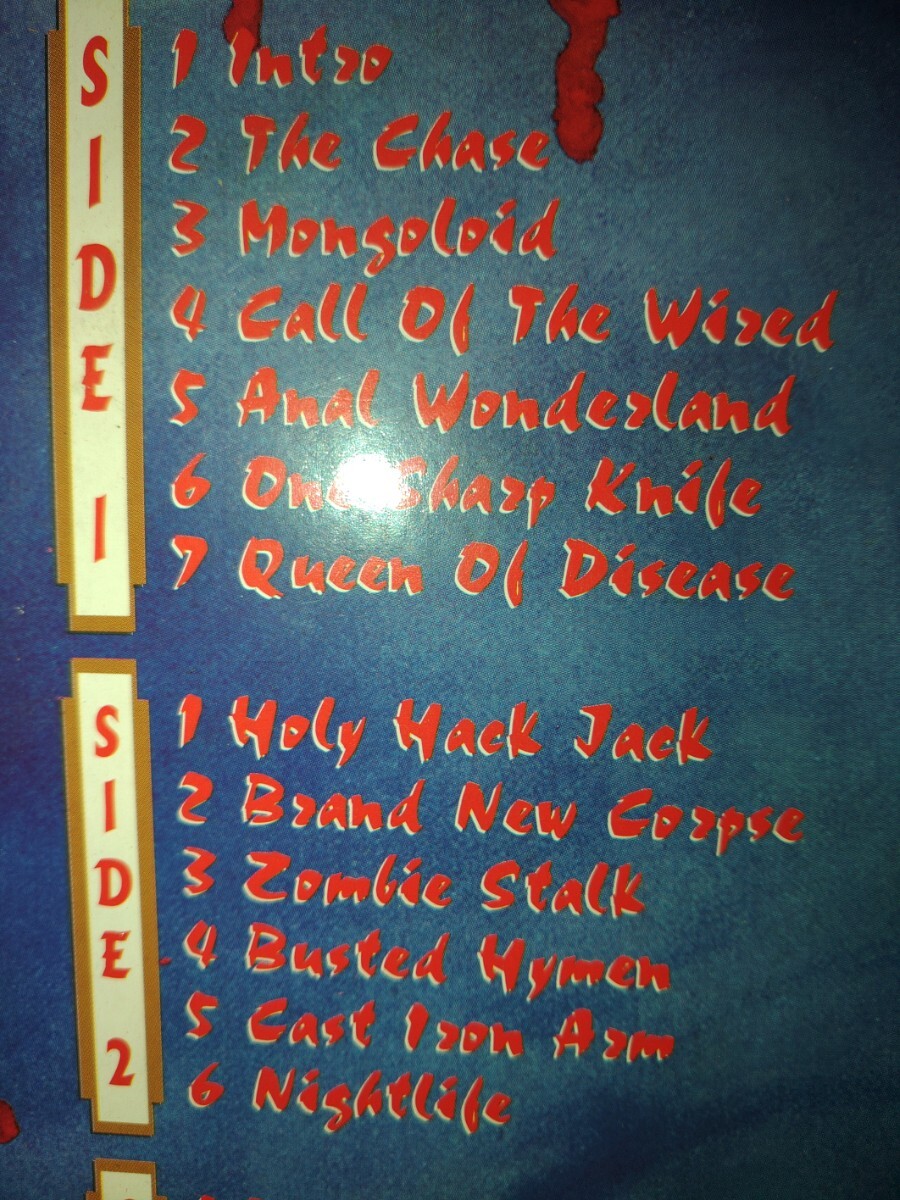 SIDE 1
1 Intro
2 The Chase
3 Mongoloid
4 Call Of The Wired
5 Anal Wonderland
6 One Sharp Knife
7 Queen Of Disease
SIDE 2
1 Holy Hack Jack
2 Brand New Corpse
3 Zombie Stalk
4 Busted Hymen
5 Cast Iron Arm
6 Nightlife